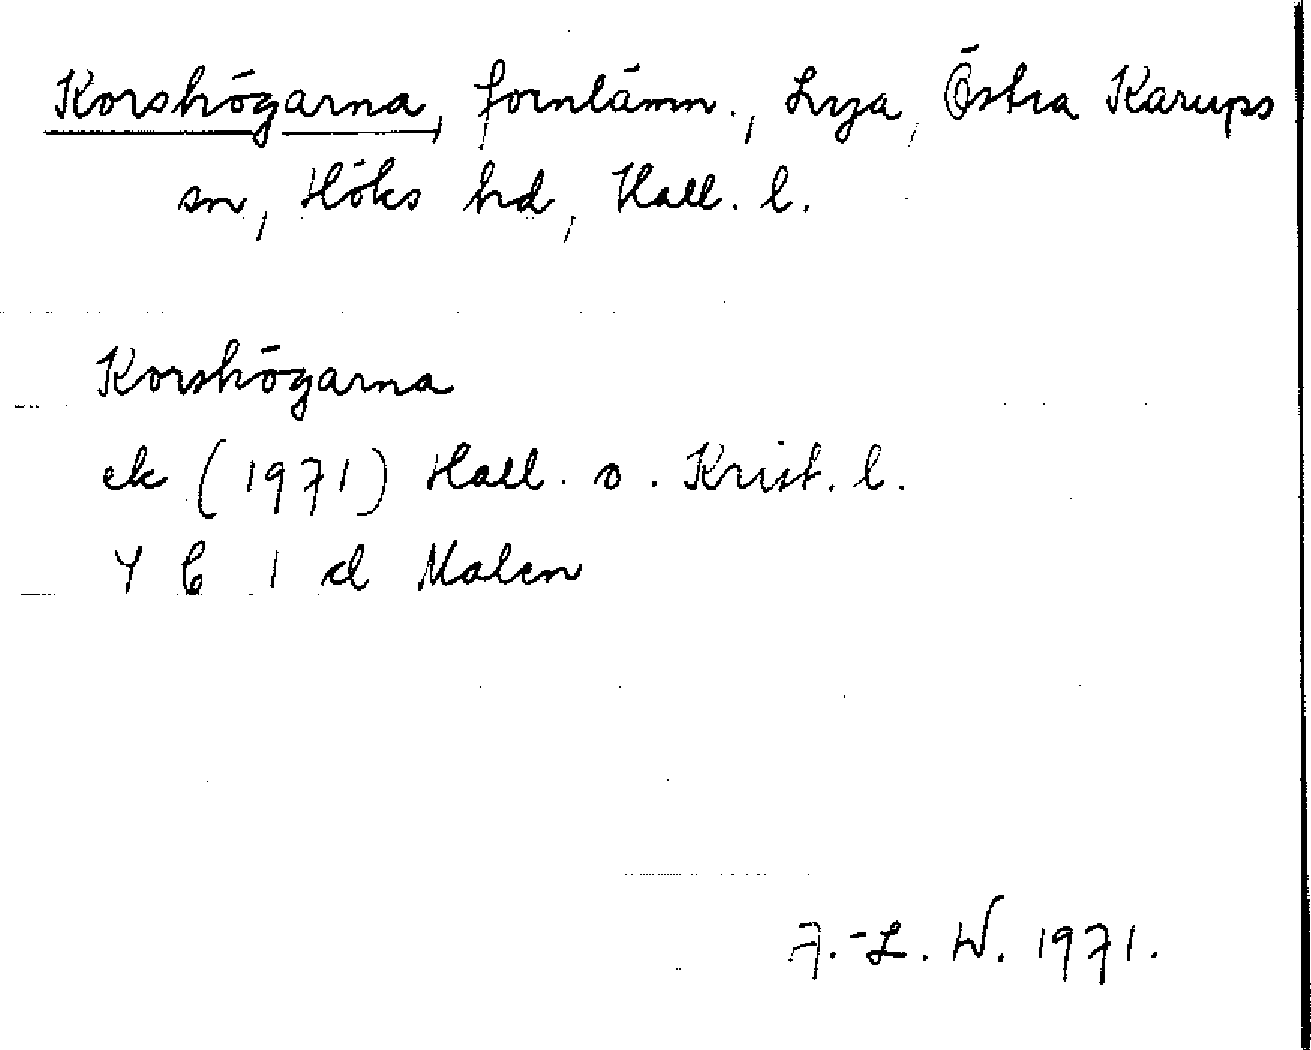 Korshögarna, fornlämn., Lya, Östra Karups
sn, Höks hd, Hall. l.
Korshögarna
ek (1971) Hall. o. Krist. l.
4 C 1 d Malen
A.-L. W. 1971.